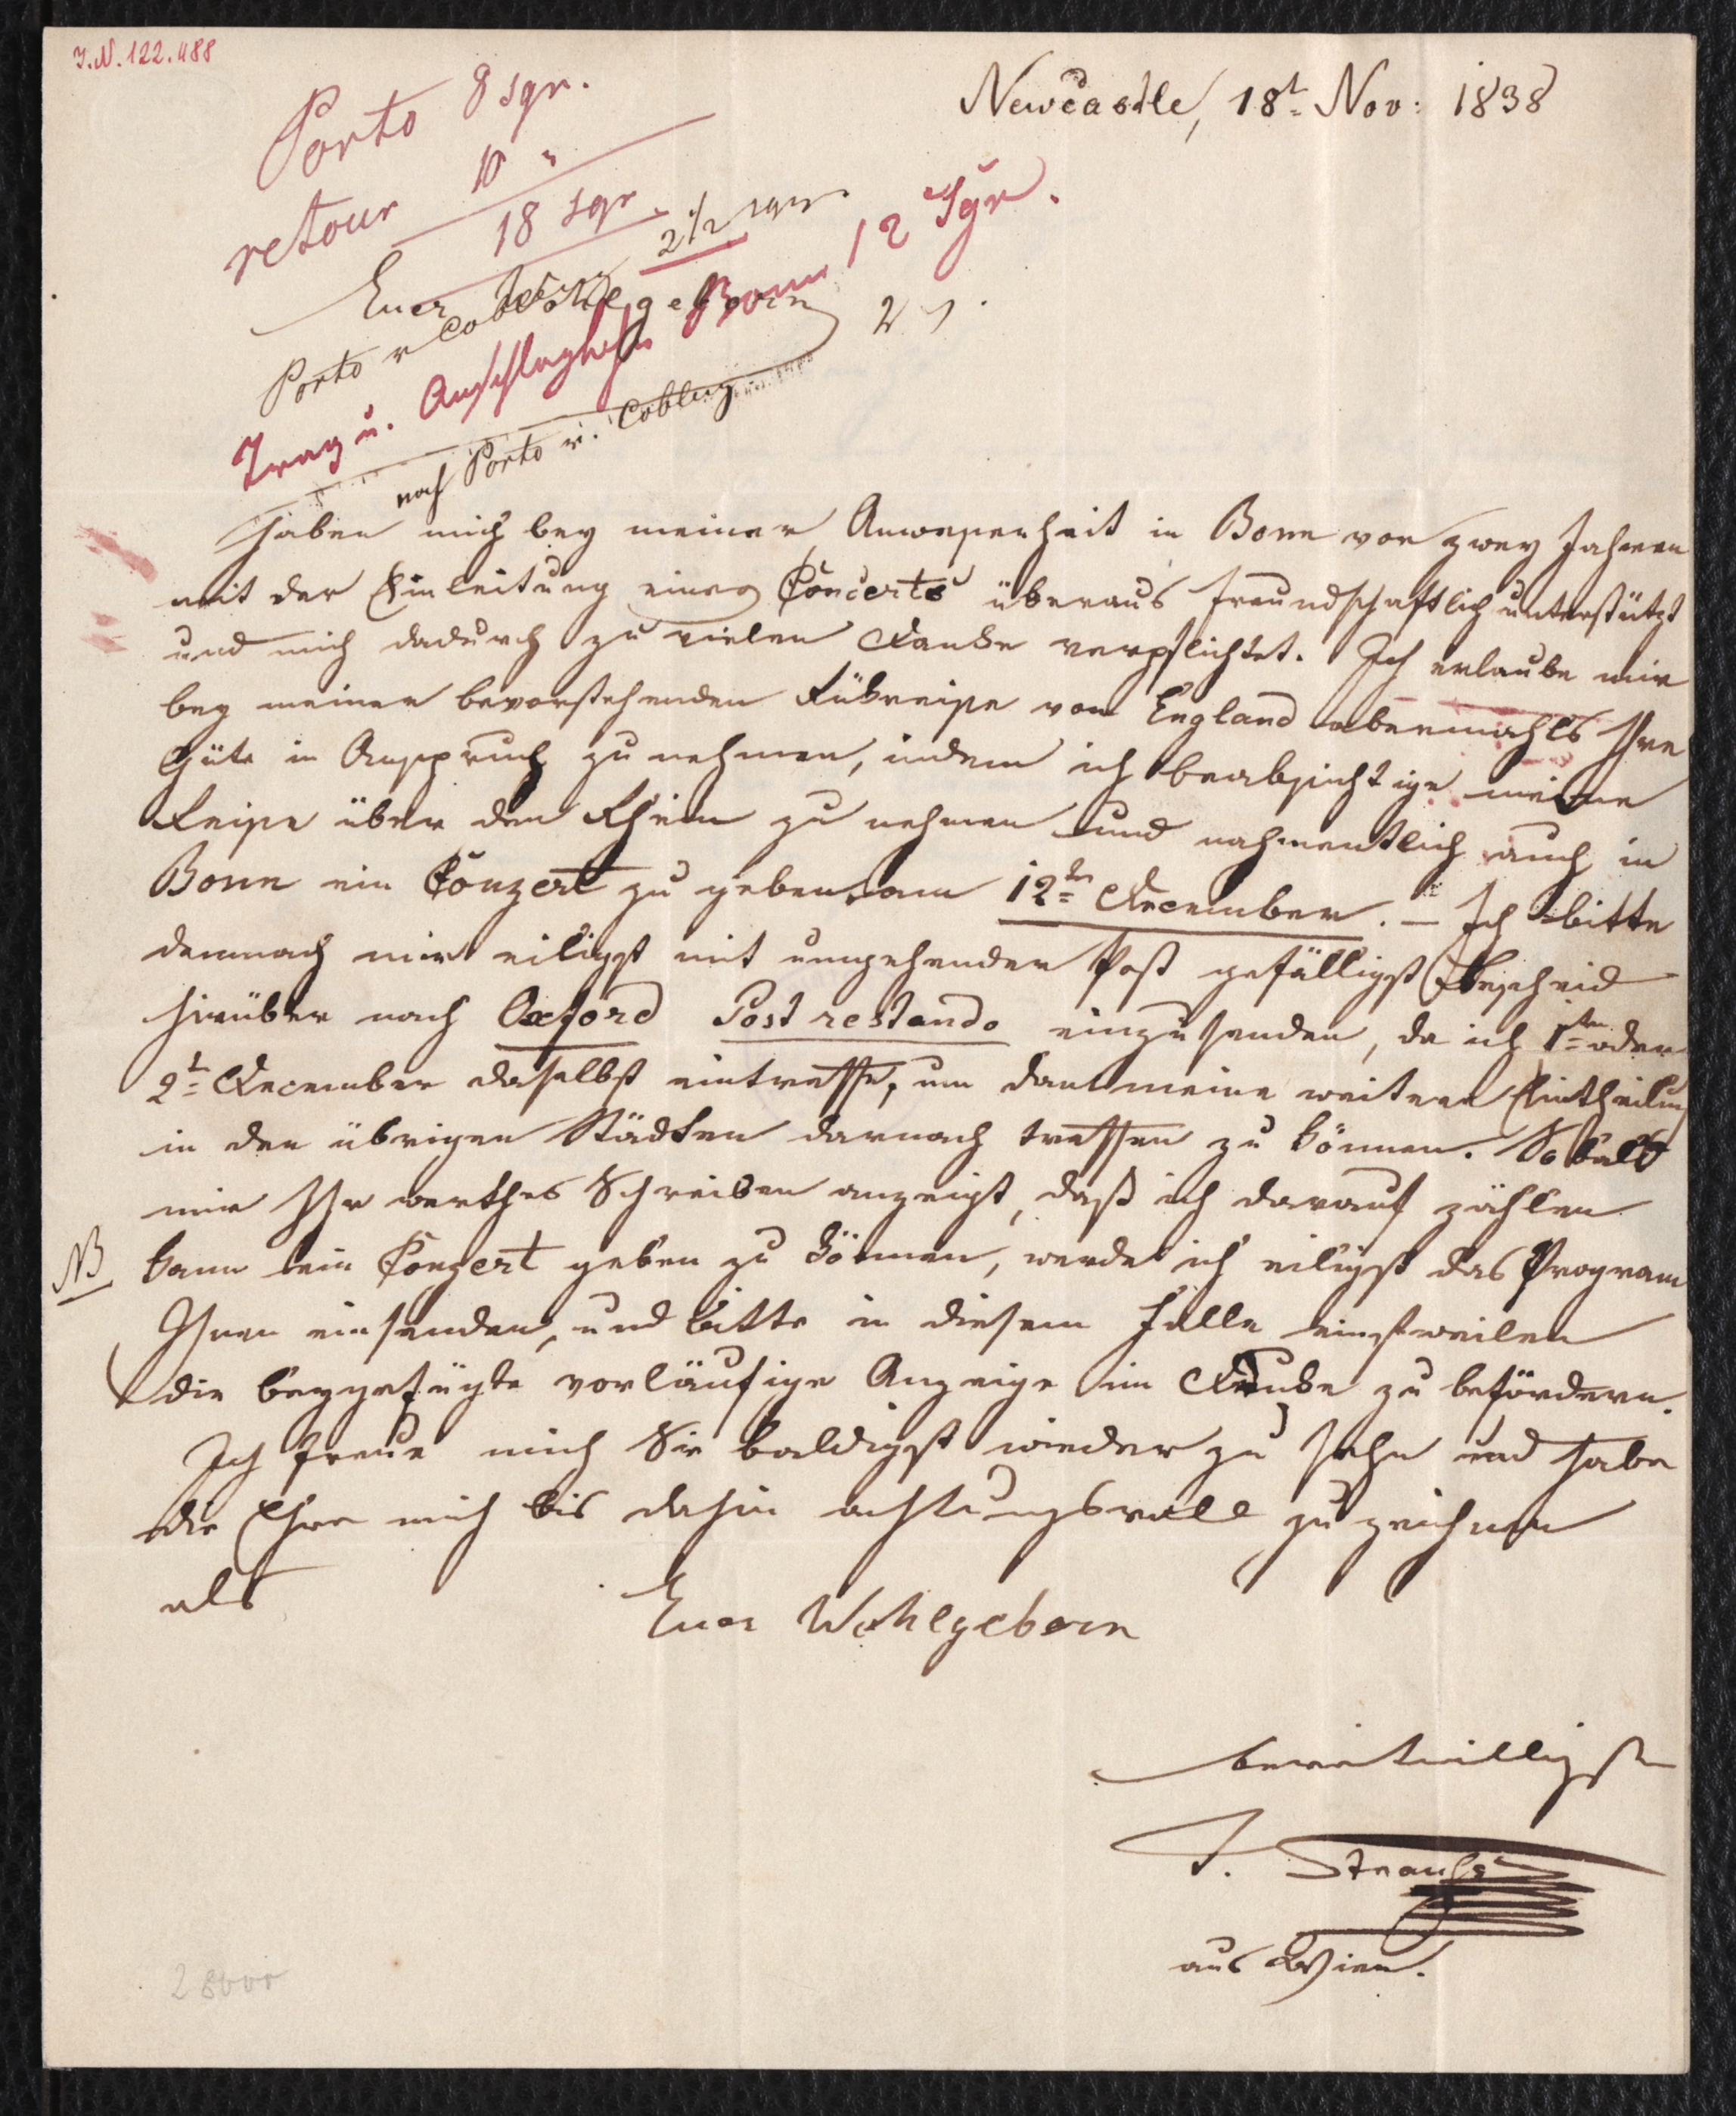 I.N. 122.488
Newcastle, 18t Nov: 1838
Porto 8 sgr.
retour 10 "
18 sgr.
Euer Wohlgeborn
Porto v Coblenz 2 1/2 sgr
Trag u. Anschlagzettel Bonn 12 Sgr.
noch Porto v. Coblenz 2 "
haben mich bey meiner Anwesenheit in Bonn vor zwey Jahren
mit der Einleitung eines Concerts überaus freundschaftlich unterstützt
und mich dadurch zu vielen Danke verpflichtet. Ich erlaube mir
bey meiner bevorstehenden Rükreise von England abermahls Ihre
Güte in Anspruch zu nehmen, indem ich beabsichtige meine
Reise über den Rhein zu nehmen und nahmentlich auch in
Bonn ein Conzert zu geben am 12ten December. – Ich bitte
demnach mir eiligst mit umgehender Post gefälligst Bescheid
hierüber nach Oxford Post restando einzusenden, da ich 1ten oder
2t December daselbst eintreffe, um dann meine weitere Eintheilung
in den übrigen Städten darnach treffen zu können. So bald
mir Ihr werthes Schreiben anzeigt, daß ich darauf zählen
NB kann ein Conzert geben zu können, werde ich eiligst das Program
Ihnen einsenden, und bitte in diesem Falle einstweilen
die beygefügte vorläufige Anzeige im Druke zu befördern.
Ich freue mich Sie baldigst wieder zu sehn und habe
die Ehre mich bis dahin achtungsvoll zu zeichnen
als
Euer Wohlgeborn
bereitwilligster
J. Strauss
aus Wien.